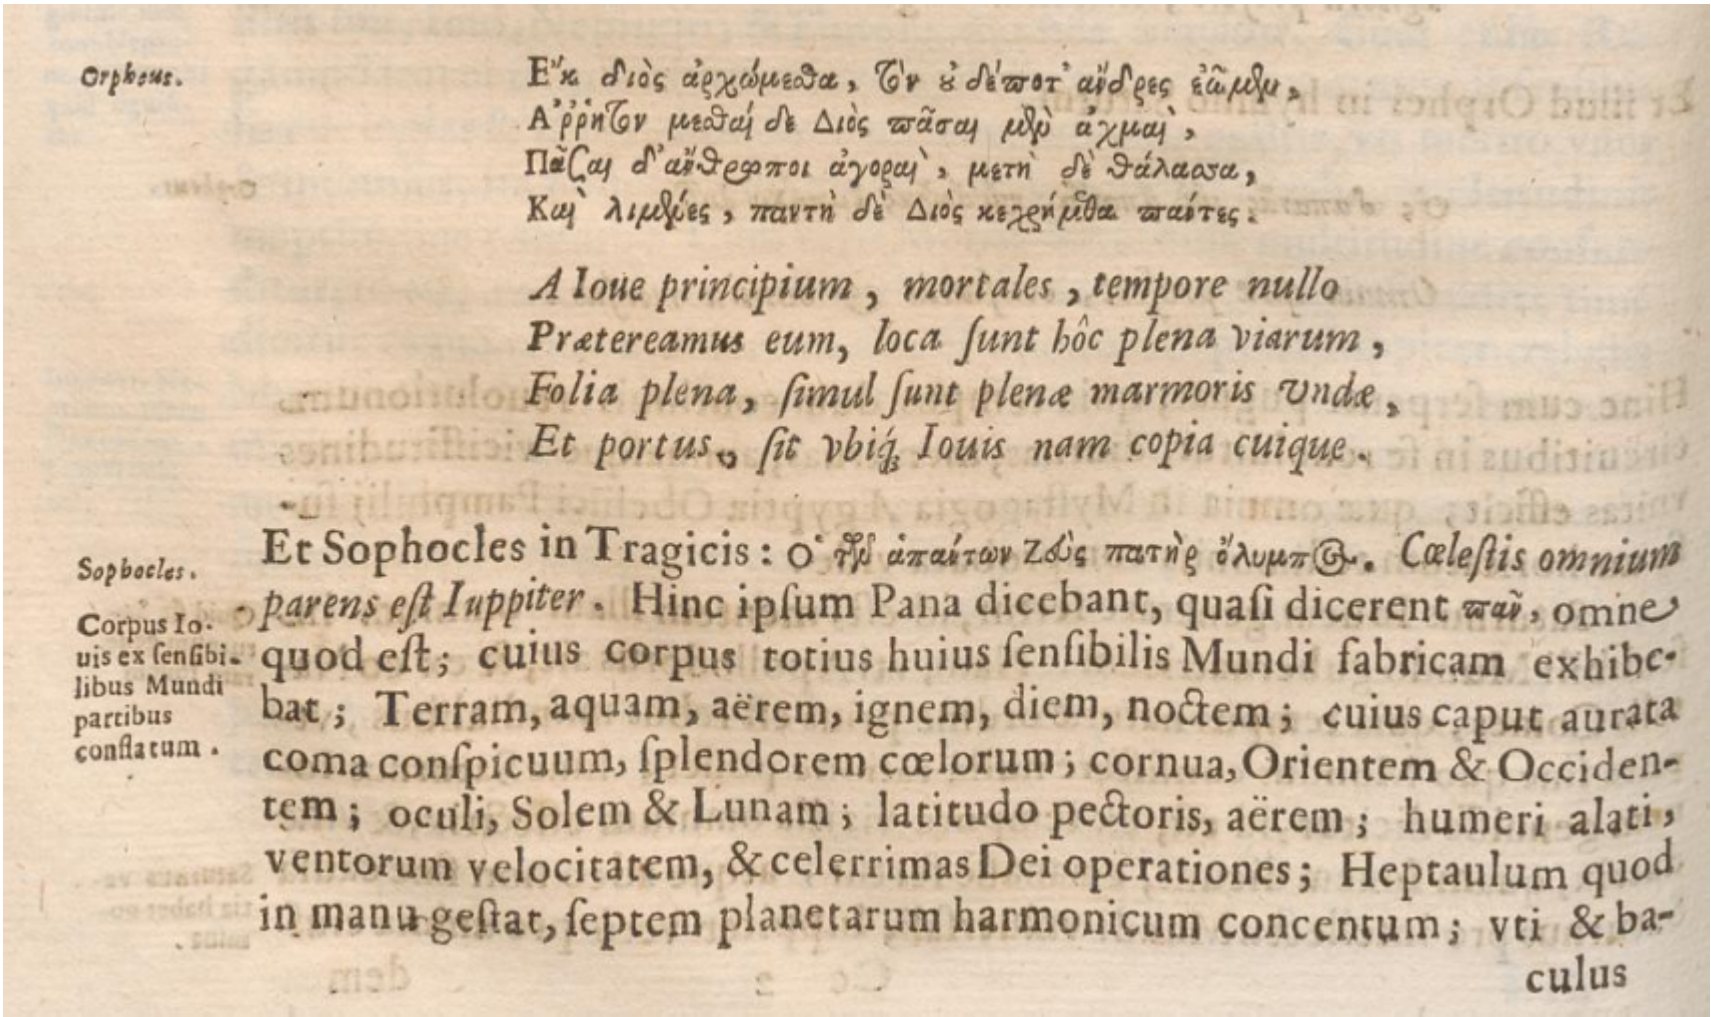 Orpheus.
Ε῎κ διὸς ἀρχώμεσθα, τὸν ȣ δέποτ᾽ ἄνδρες ἐῶμεν,
Α῎ῤῥητον μεσθαὶ δε Διὸς πᾶσαι μὲν ἀχμαὶ,
Πᾶσαι δ᾽ ἄνθρωποι ἀγοραὶ, μετὴ δὲ θάλασσα,
Καὶ λιμένες, παντὴ δὲ Διὸς κεχρήμεθα πάντες.
A Ioue principium, mortales, tempore nullo
Prætereamus eum, loca ſunt hôc plena viarum,
Folia plena, ſimul ſunt plenæ marmoris vndæ,
Et portus, ſit vbiq; Iouis nam copia cuique.
Sophocles.
Et Sophocles in Tragicis: ο῾ τῶν ἁπάντων Ζεὺς πατὴρ ὄλυμπος. Cœleſtis omnium
parens eſt Iuppiter. Hinc ipſum Pana dicebant, quaſi dicerent πᾶν, omne
quod eſt; cuius corpus totius huius ſenſibilis Mundi fabricam exhibe-
bat; Terram, aquam, aërem, ignem, diem, noctem; cuius caput aurata
coma conſpicuum, ſplendorem cœlorum; cornua, Orientem & Occiden-
tem; oculi, Solem & Lunam; latitudo pectoris, aërem; humeri alati,
ventorum velocitatem, & celerrimas Dei operationes; Heptaulum quod
in manu geſtat, ſeptem planetarum harmonicum concentum; vti & ba-
culus
Corpus Io-
uis ex ſenſibi-
libus Mundi
partibus
conflatum.